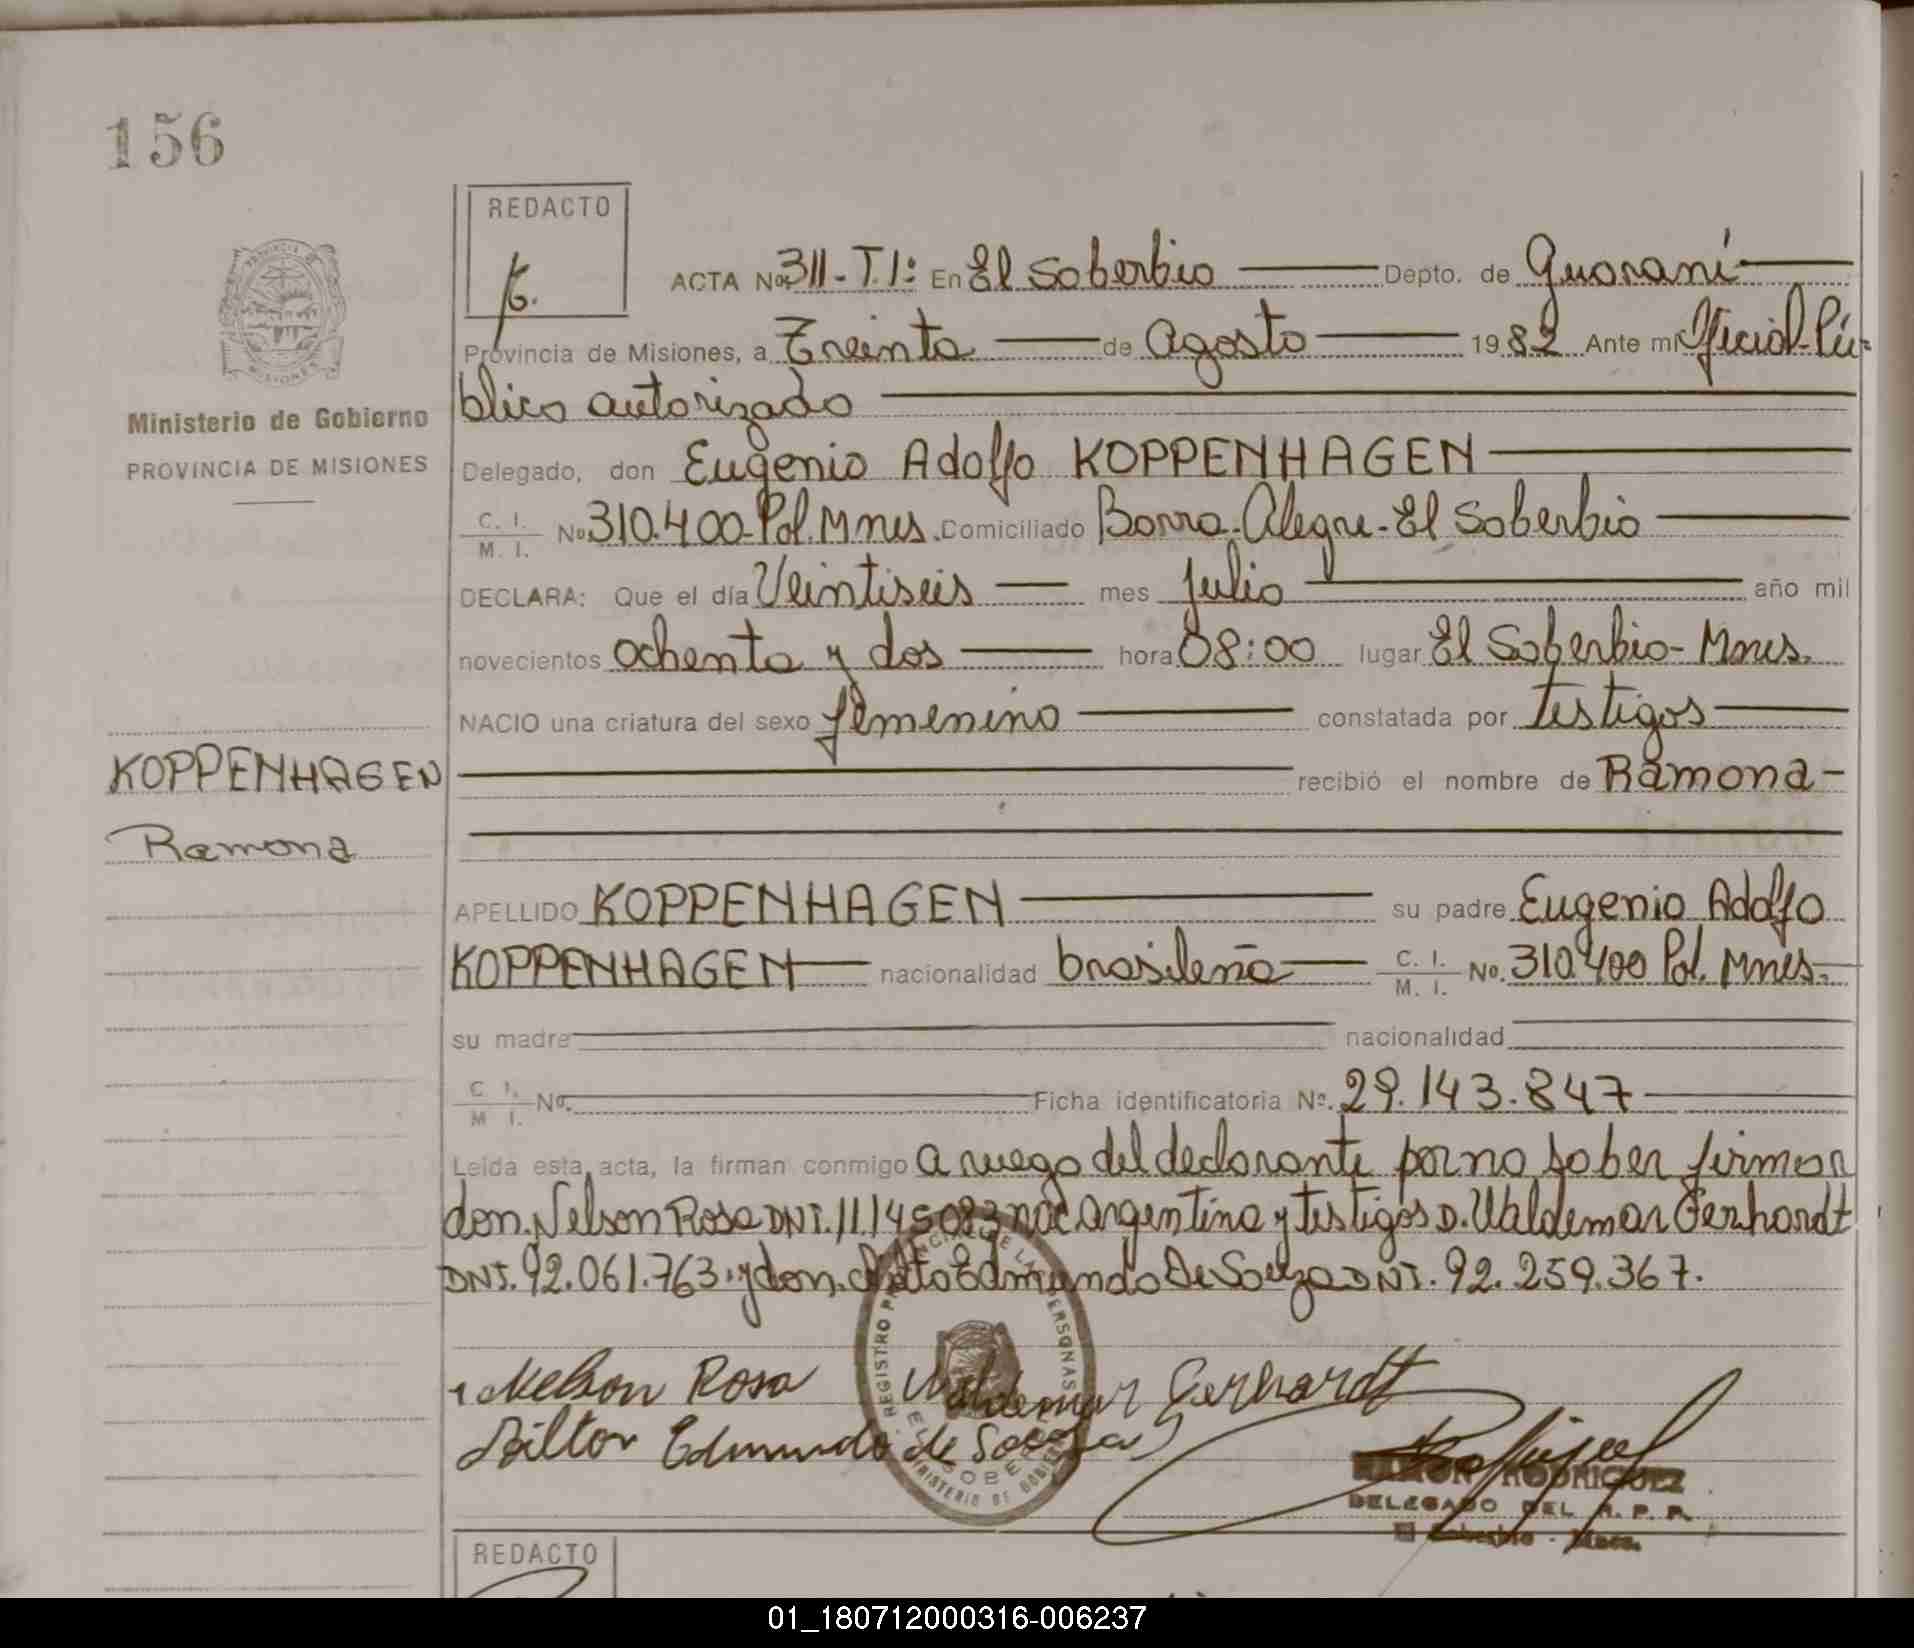 156
REDACTO
ACTA No. 311-T.1: En El Soberbio Depto. de Guaraní
Provincia de Misiones, a Treinta de Agosto 1982 Ante mi Oficial Pú-
blico autorizado
Ministerio de Gobierno
PROVINCIA DE MISIONES
Delegado, don Eugenio Adolfo KOPPENHAGEN
C. I.
M. I. No. 310.400-Pol. Mnes. Domiciliado Barra-Alegre-El Soberbio
DECLARA: Que el día Veintiseis mes Julio año mil
novecientos ochenta y dos hora 08:00 lugar El Soberbio-Mnes.
NACIO una criatura del sexo femenino constatada por testigos
KOPPENHAGEN
recibió el nombre de Ramona-
Ramona
APELLIDO KOPPENHAGEN su padre Eugenio Adolfo
KOPPENHAGEN nacionalidad brasileña C. I.
M. I. No. 310.400 Pol. Mnes.
su madre nacionalidad
C. I.
M. I. No. Ficha identificatoria No. 29.143.847
Leida esta acta, la firman conmigo a ruego del declarante por no saber firmar
don. Nelson Rosa DNI. 11.145083 nac argentina y testigos D. Waldemar Gerhardt
DNI. 92.061.763. y don. Edmundo De Souza DNI. 92.259.367.
Nelson Rosa Waldemar Gerhardt
Edmundo de Souza
REGISTRO PROVINCIAL DE LAS PERSONAS
EL SOBERBIO
MINISTERIO DE GOBIERNO
RAMON RODRIGUEZ
DELEGADO DEL R. P. P.
El Soberbio - Mnes.
REDACTO
01_180712000316-006237